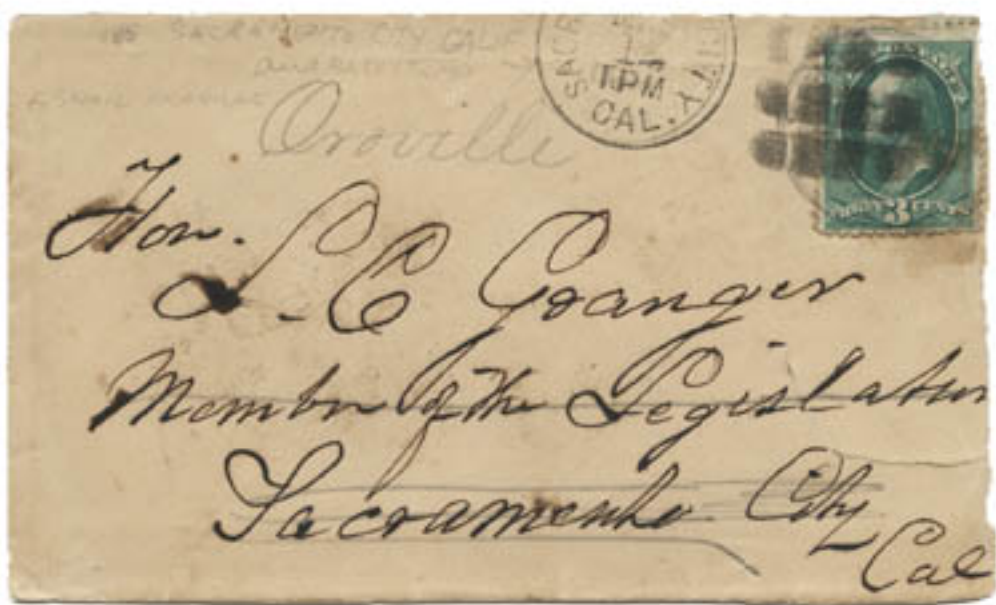 SACRAMENTO CITY CALIF
Oroville
1 PM
CAL.
3 CENTS
Hon.
L. C Granger
Member of the Legislature
Sacramento City
Cal